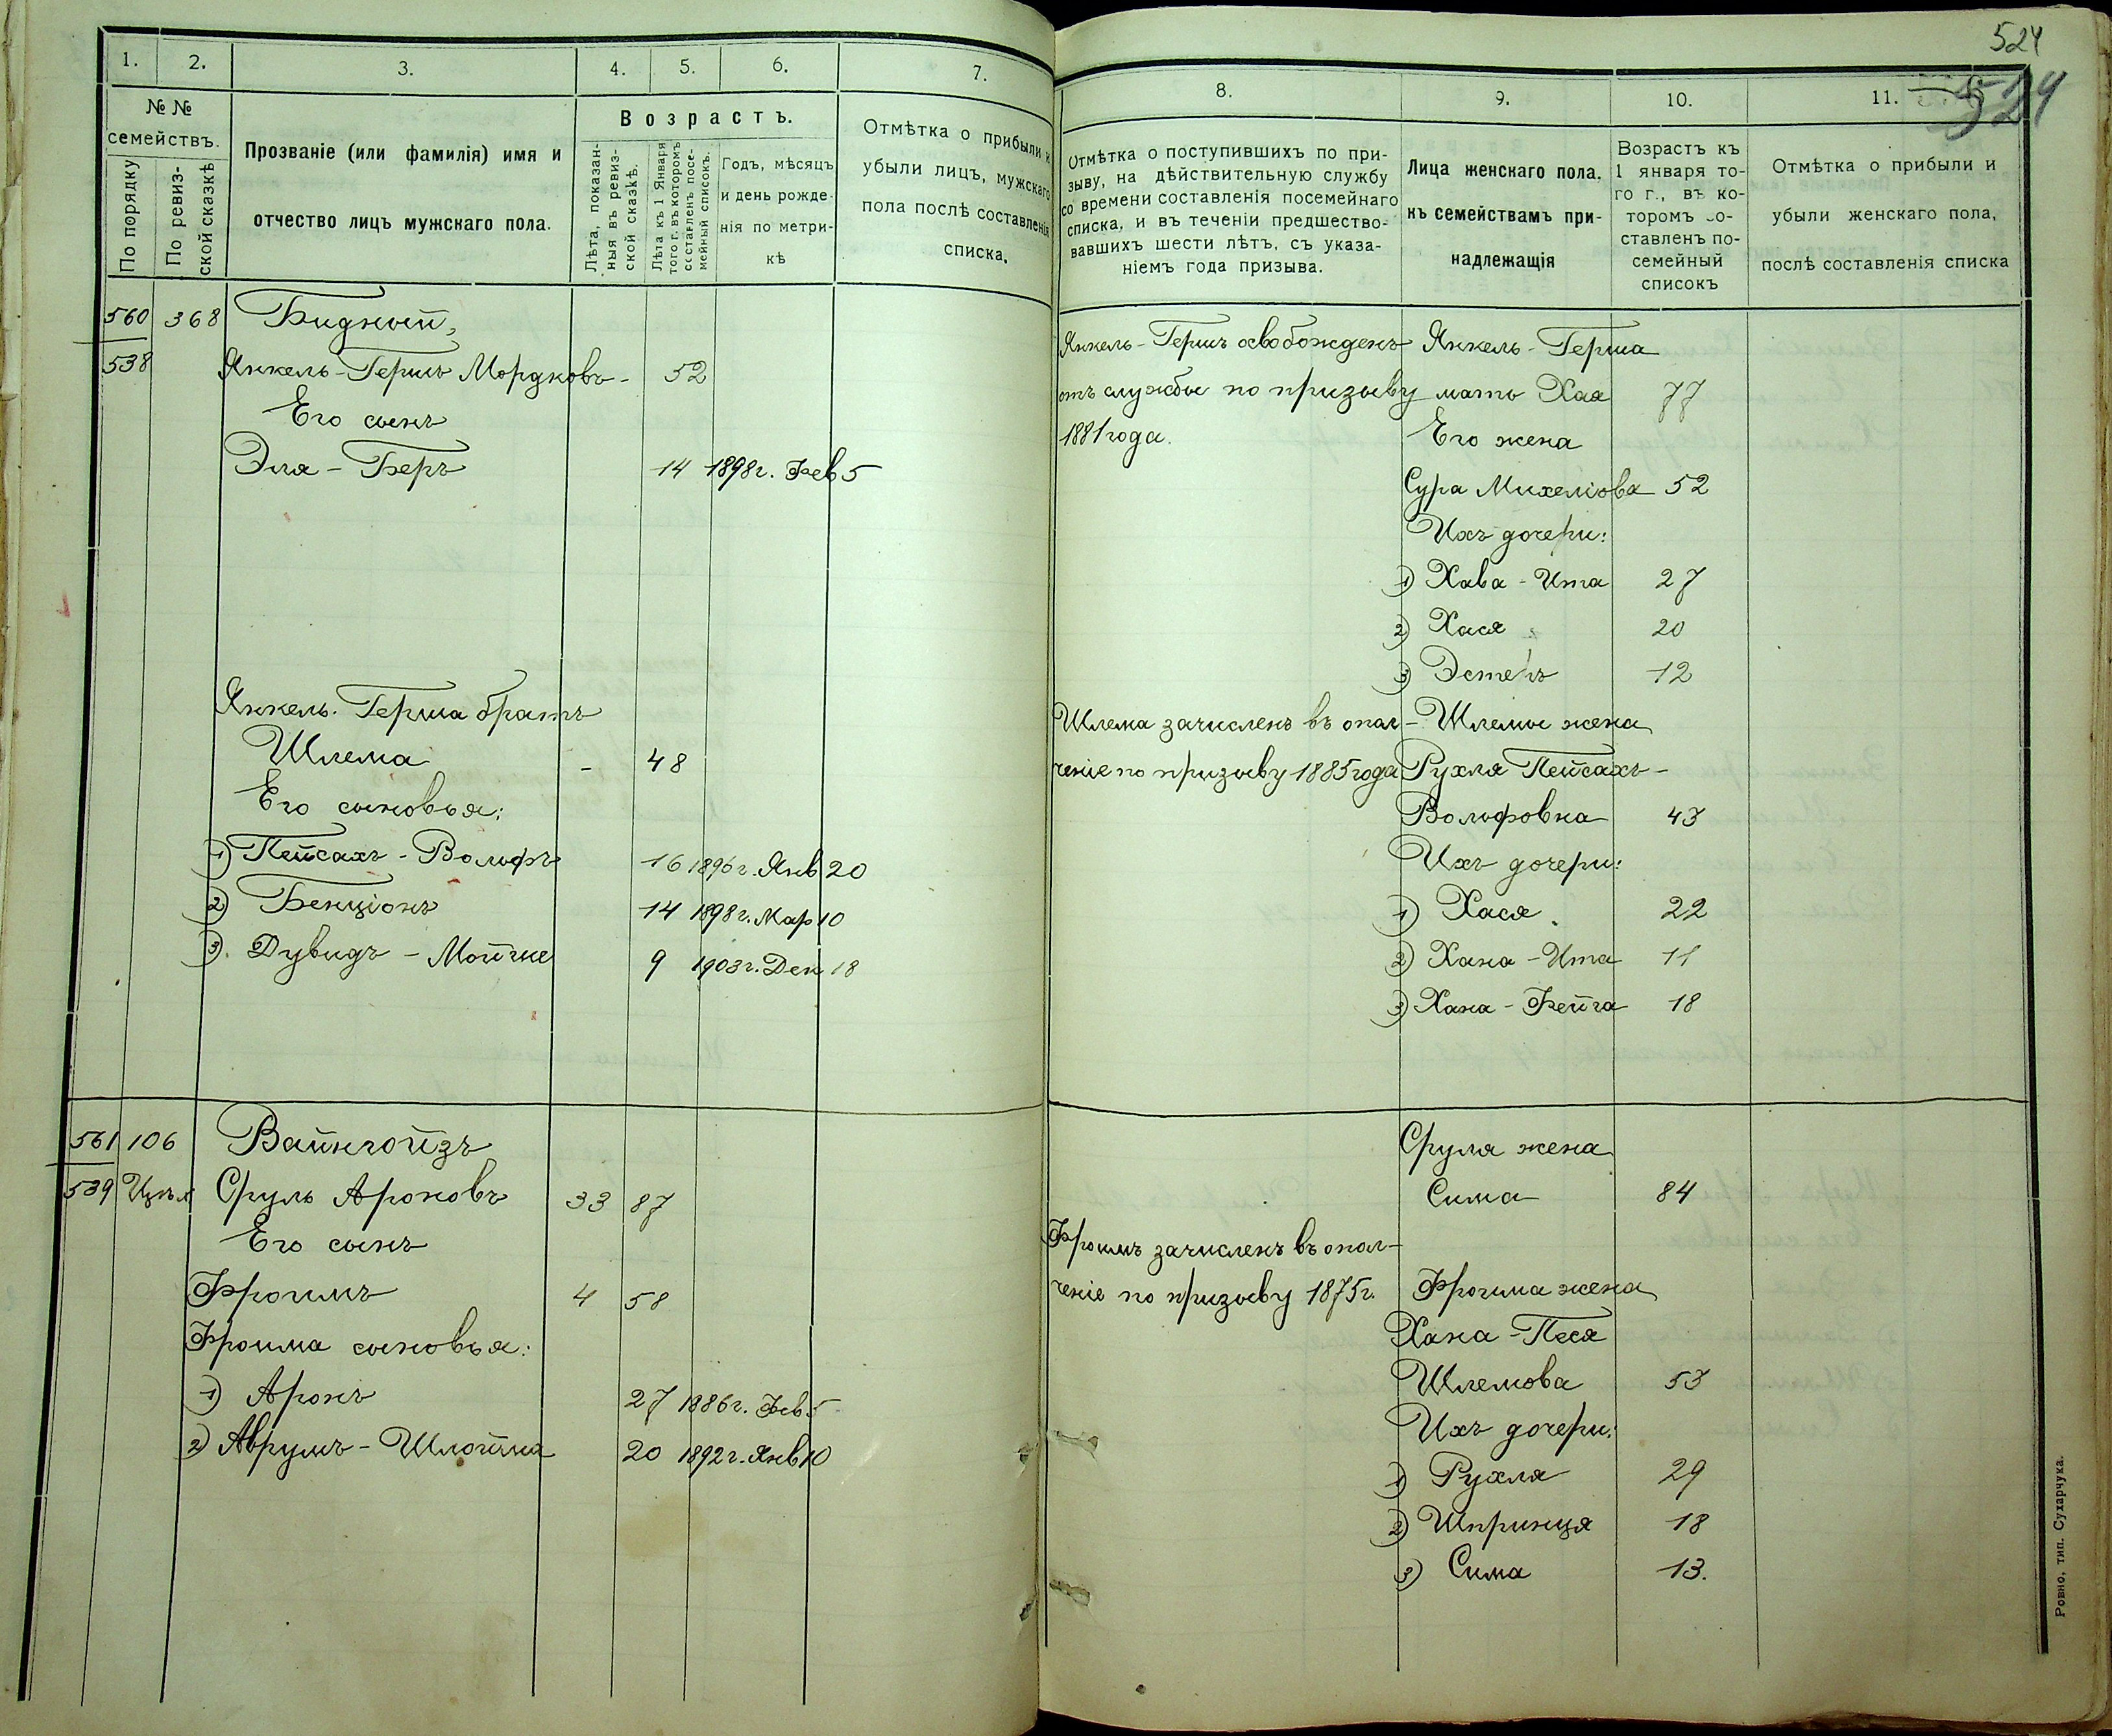 524
524
1. 2. 3. 4. 5. 6. 7.
№№ семействъ.
По порядку
По ревизской сказкѣ
Прозваніе (или фамилія) имя и
отчество лицъ мужскаго пола.
Возрастъ.
Лѣта, показан-
ныя въ ревиз-
ской сказкѣ.
Лѣта къ 1 Января
того г. въ которомъ
составленъ посе-
мейный списокъ.
Годъ, мѣсяцъ
и день рожде-
нія по метри-
кѣ
Отмѣтка о прибыли и
убыли лицъ, мужскаго
пола послѣ составленія
списка.
560 368 Бидный,
538 Янкель-Гершъ Мордковъ - 52
Его сынъ
Эля-Беръ 14 1898г. Фев 5
Янкель-Герша братъ
Шлема - 48
Его сыновья:
1) Пейсахъ-Вольфъ 16 1896г. Янв 20
2) Бенціонъ 14 1898г. Мар 10
3) Дувидъ-Мойше 9 1903г. Дек 18
561 106 Вайнгойзъ
539 Сруль Ароновъ 33 87
Его сынъ
Фроимъ 4 58
Фроима сыновья:
1) Аронъ 27 1886г. Фев 5
2) Аврумъ-Шлойма 20 1892г. Янв 10
8. 9. 10. 11.
Отмѣтка о поступившихъ по при-
зыву, на дѣйствительную службу
со времени составленія посемейнаго
списка, и въ теченіи предшество-
вавшихъ шести лѣтъ, съ указа-
ніемъ года призыва.
Лица женскаго пола,
къ семействамъ при-
надлежащія
Возрастъ къ
1 января то-
го г., въ ко-
торомъ со-
ставленъ по-
семейный
списокъ
Отмѣтка о прибыли и
убыли женскаго пола,
послѣ составленія списка
Янкель-Гершъ освобожденъ Янкель-Герша
отъ службы по призыву мать Хая 77
1881 года. Его жена
Сура Михеліова 52
Ихъ дочери:
1) Хава-Ита 27
2) Хася 20
3) Эстеръ 12
Шлема зачисленъ въ опол- Шлемы жена
ченіе по призыву 1885 года Рухля Пейсахъ-
Вольфовна 43
Ихъ дочери:
1) Хася 22
2) Хана-Ита 11
3) Хана-Фейга 18
Сруля жена
Сима 84
Фроимъ зачисленъ въ опол-
ченіе по призыву 1875г. Фроима жена
Хана-Песя
Шлемова 53
Ихъ дочери:
1) Рухля 29
2) Шпринця 18
3) Сима 13.
Ровно, тип. Сухарчука.